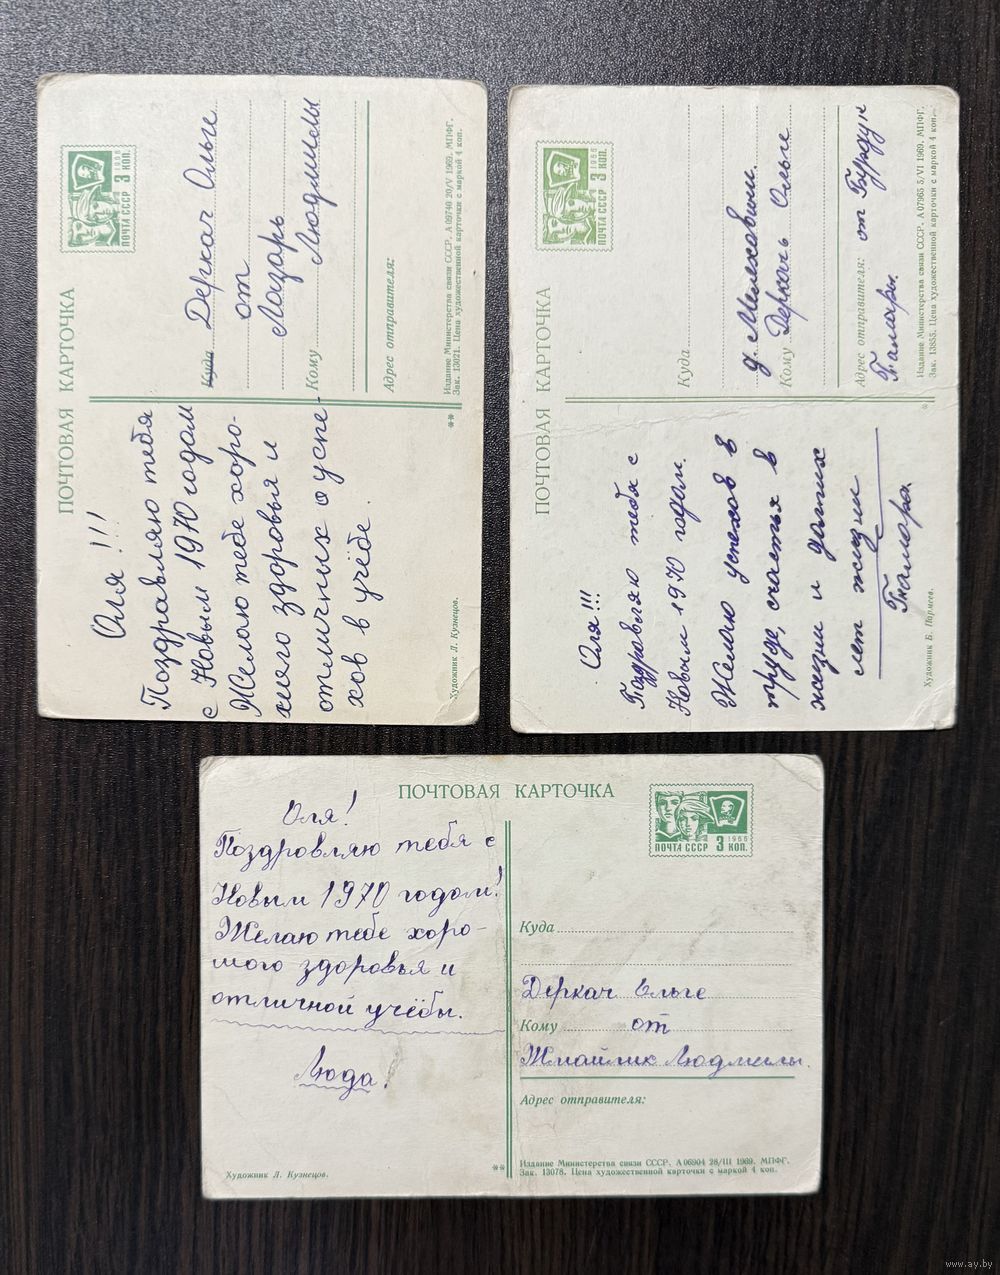 ПОЧТОВАЯ КАРТОЧКА
Оля!!!
Поздравляю тебя
с Новым 1970 годом
Желаю тебе хоро-
шего здоровья и
отличных успе-
хов в учёбе.
Художник Л. Кузнецов.
ПОЧТА СССР 3 КОП.
1966
Куда Деркач Ольге
от
Лазарь
Кому Людмилы
Адрес отправителя:
Издание Министерства связи СССР. А 09740 20/V 1969. МПФГ.
Зак. 13021. Цена художественной карточки с маркой 4 коп.
**
ПОЧТОВАЯ КАРТОЧКА
Оля!!!
Поздравляю тебя с
Новым 1970 годом.
Желаю успехов в
труде, счастья в
жизни и долгих
лет жизни
Тамара.
Художник Б. Пармеев.
ПОЧТА СССР 3 КОП.
1966
Куда
д. Мелеховичи.
Кому Деркачь Ольге
Адрес отправителя: от Бурдук
Тамары.
Издание Министерства связи СССР. А 07965 5/VI 1969. МПФГ.
Зак. 13855. Цена художественной карточки с маркой 4 коп.
*
ПОЧТОВАЯ КАРТОЧКА
Оля!
Поздровляю тебя с
Новым 1970 годом!
Желаю тебе хоро-
шого здоровья и
отличной учёбы.
Люда!
Художник Л. Кузнецов.
ПОЧТА СССР 3 КОП.
1966
Куда
Деркач Ельге
Кому от
Жмайлик Людмилы.
Адрес отправителя:
**
Издание Министерства связи СССР. А 06904 28/III 1969. МПФГ.
Зак. 13078. Цена художественной карточки с маркой 4 коп.
www.ay.by